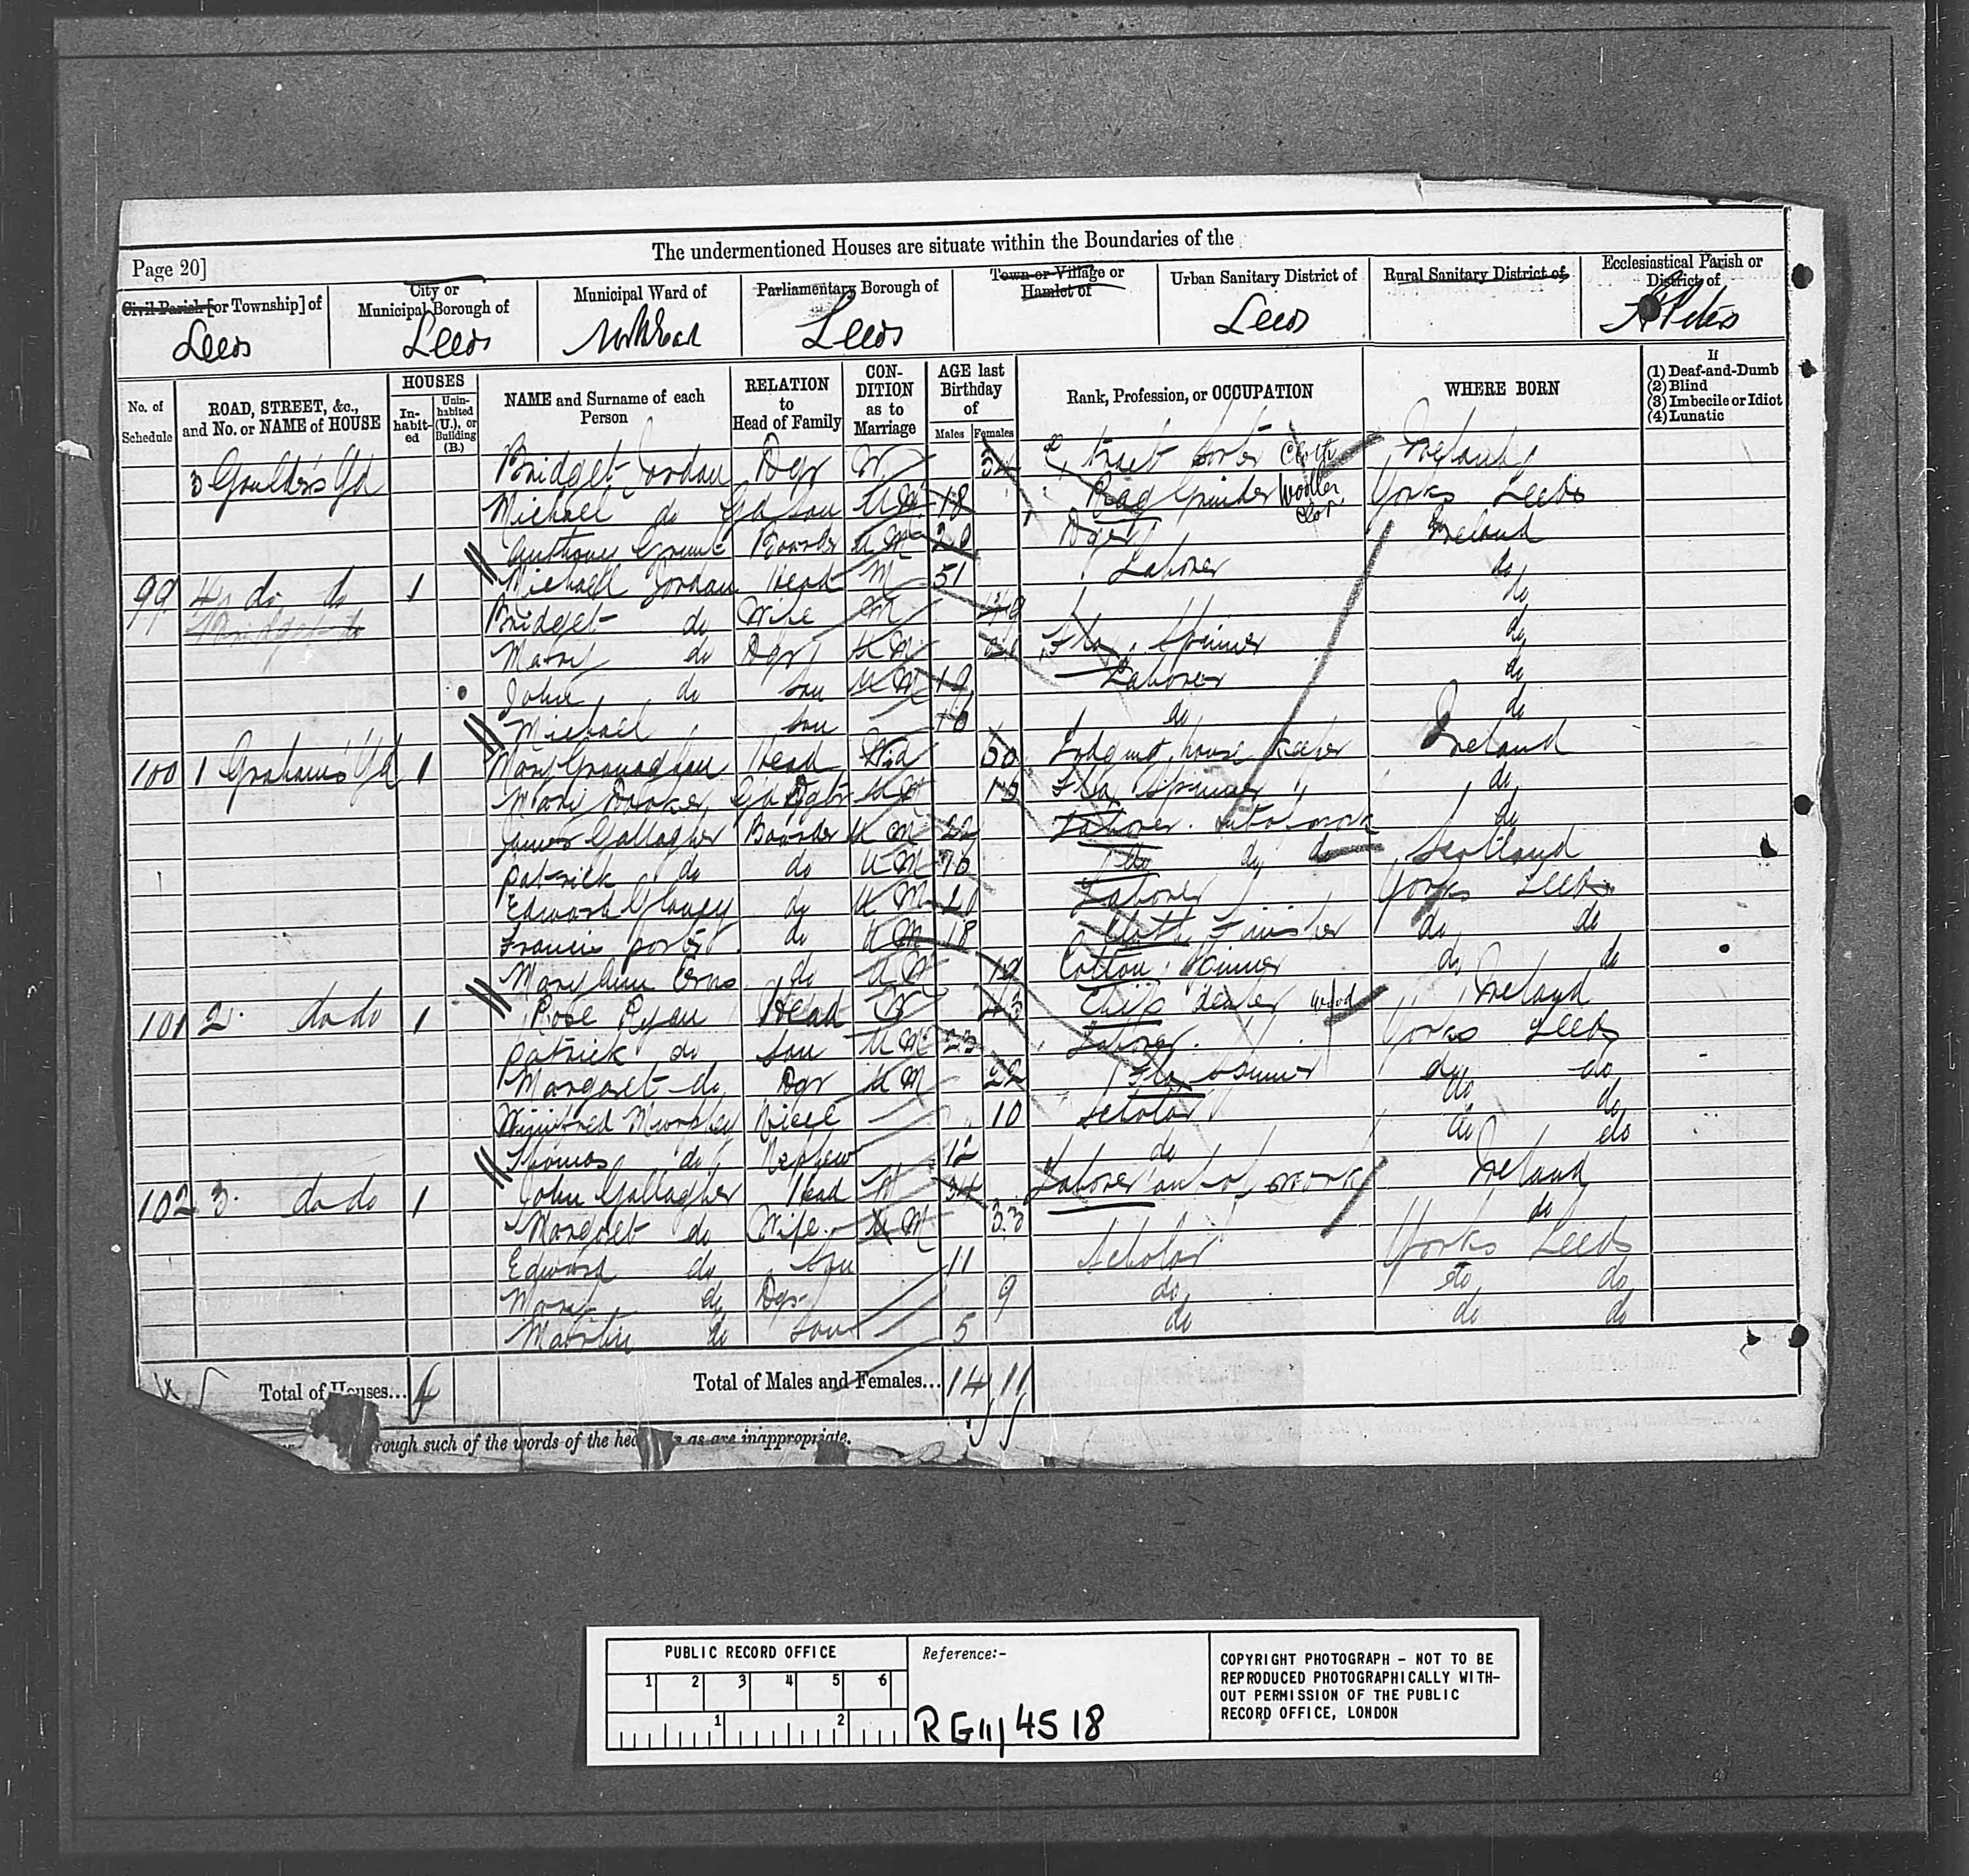 The undermentioned Houses are situate within the Boundaries of the
Page 20]
Civil Parish [or Township] of
City or Municipal Borough of
Municipal Ward of
Parliamentary Borough of
Town or Village or Hamlet of
Urban Sanitary District of
Rural Sanitary District of
Ecclesiastical Parish or District of
Leeds Leeds North East Leeds Leeds St Peters
No. of Schedule
ROAD, STREET, &c., and No. or NAME of HOUSE
HOUSES
Inhabited
Uninhabited (U.), or Building (B.)
NAME and Surname of each Person
RELATION to Head of Family
CONDITION as to Marriage
AGE last Birthday of
Males Females
Rank, Profession, or OCCUPATION
WHERE BORN
If
(1) Deaf-and-Dumb
(2) Blind
(3) Imbecile or Idiot
(4) Lunatic
3 Goulders Yd Bridget Jordan Dgr W Sorter Cloth Ireland
Michael do Gd Son U M 18 Rag Grinder Woollen Yorks Leeds
Anthony Boarder U M 20 Dyer Ireland
99 4 do do 1 Michael Jordan Head M 51 Laborer do
Bridget do Wife M 49 do
Mary do Dgr U M 21 Flax Spinner do
John do Son U M 19 Laborer do
Michael Son 16 do do
100 1 Grahams Yd 1 Mary Head Wid 50 Lodging house Keeper Ireland
Mary Gd Dgtr U M 13 Flax Spinner do
James Gallagher Boarder U M 22 Laborer out of work do
Patrick do do U M 16 do do do Scotland
Edward do U M 20 Laborer Yorks Leeds
Francis do U M 18 Cloth Finisher do do
Mary Ann do U M 19 Cotton Spinner do do
101 2. do do 1 Rose Ryan Head W 43 Chip dealer wood Ireland
Patrick do Son U M 23 Laborer Yorks Leeds
Margaret do Dgr U M 22 Flax Spinner do do
Winifred Murphy Niece 10 Scholar do do
Thomas do Nephew 12 do do do
102 3. do do 1 John Gallagher Head M 34 Laborer out of work Ireland
Margret do Wife M 33 do
Edward do Son 11 Scholar Yorks Leeds
Mary do Dgr 9 do do do
Martin do Son 5 do do do
Total of Houses... 4 Total of Males and Females... 14 11
rough such of the words of the as are inappropriate.
PUBLIC RECORD OFFICE
1 2 3 4 5 6
1 2
Reference:-
RG 11/4518
COPYRIGHT PHOTOGRAPH - NOT TO BE
REPRODUCED PHOTOGRAPHICALLY WITH-
OUT PERMISSION OF THE PUBLIC
RECORD OFFICE, LONDON